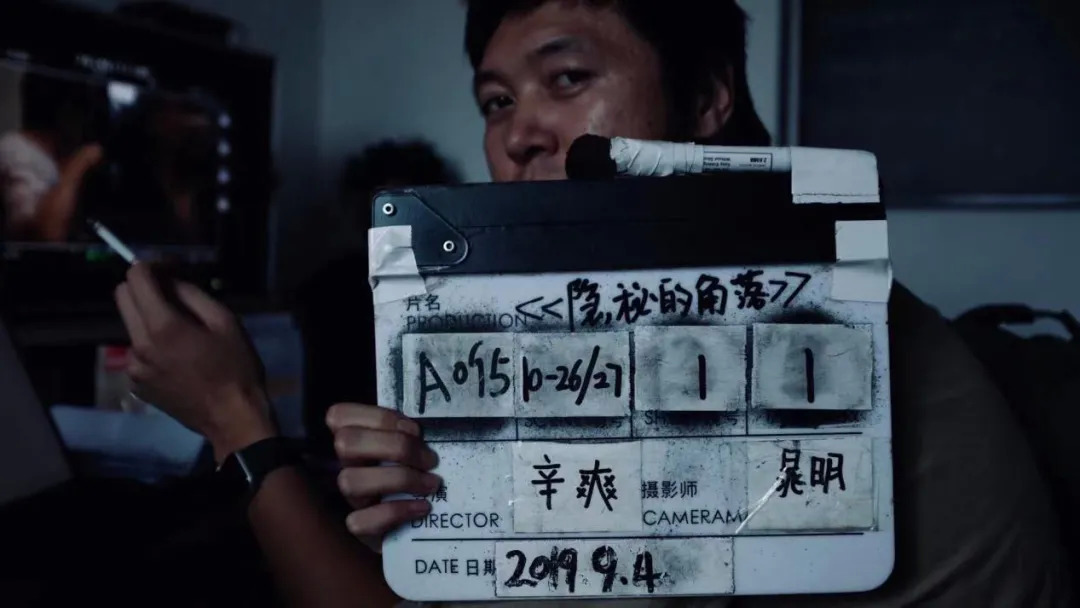 片名 <<隐秘的角落>>
PRODUCTION
A095 10-26/27 1 1
辛爽 摄影师 晁明
DIRECTOR CAMERAM
DATE 日期 2019 9.4